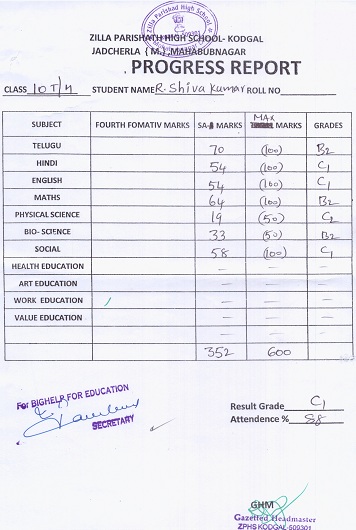 Zilla Parishad High School
ZILLA PARISHATH HIGH SCHOOL- KODGAL
JADCHERLA ( M.) ,MAHABUBNAGAR
PROGRESS REPORT
CLASS 10 T/M STUDENT NAME R. Shiva Kumar ROLL NO
SUBJECT FOURTH FOMATIV MARKS SA- MARKS MAX MARKS GRADES
TELUGU 70 (100) B2
HINDI 54 (100) C1
ENGLISH 54 (100) C1
MATHS 64 (100) B2
PHYSICAL SCIENCE 19 (50) C2
BIO- SCIENCE 33 (50) B2
SOCIAL 58 (100) C1
HEALTH EDUCATION — — —
ART EDUCATION — — —
WORK EDUCATION — — —
VALUE EDUCATION — — —
— — —
352 600
For BIGHELP FOR EDUCATION
SECRETARY
Result Grade C1
Attendence % 88
GHM
Gazetted Headmaster
ZPHS KODGAL-509301